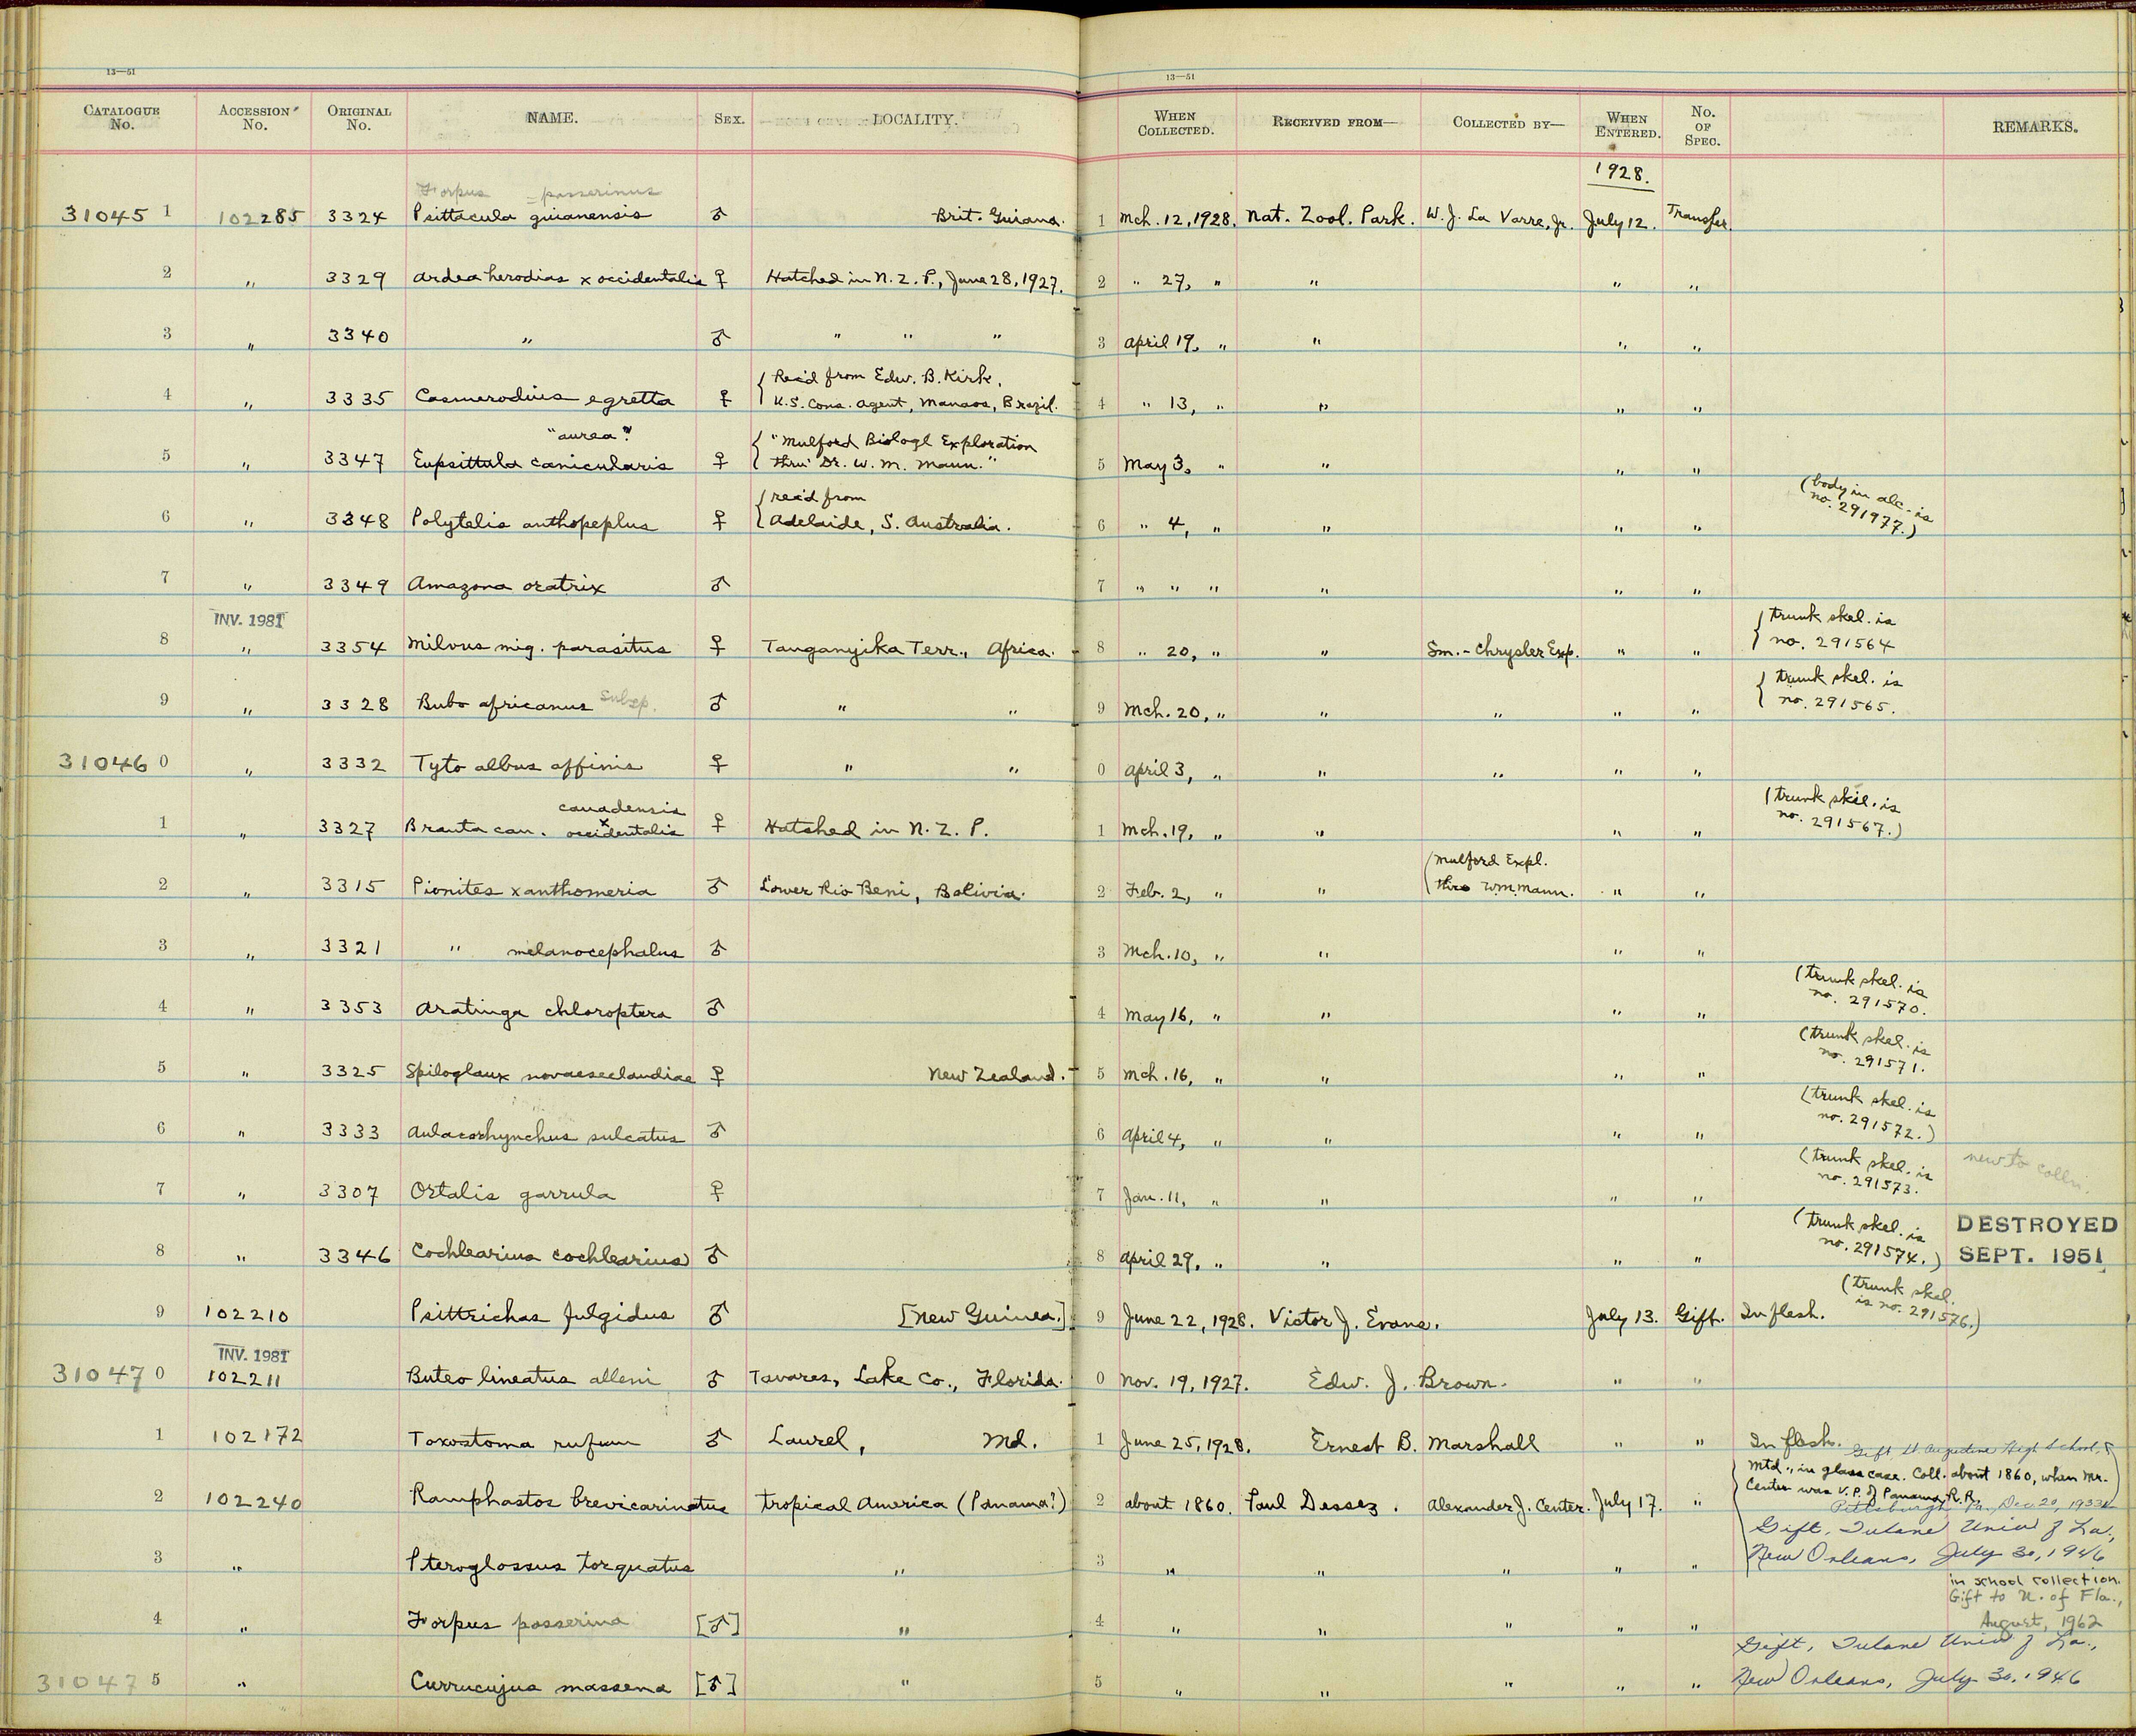 13—51
13—51
CATALOGUE No. ACCESSION No. ORIGINAL No. NAME. SEX. LOCALITY. WHEN COLLECTED. RECEIVED FROM— COLLECTED BY— WHEN ENTERED. No. OF SPEC. REMARKS.
1928.
Forpus passerinus
31045 1 102285 3324 Psittacula guianensis ♂ Brit. Guiana. 1 Mch. 12, 1928. Nat. Zool. Park. W. J. La Varre, Jr. July 12. Transfer.
2 " 3329 Ardea herodias x occidentalis ♀ Hatched in N. Z. P., June 28, 1927. 2 " 27, " " " "
3 " 3340 " ♂ " " " 3 April 19, " " " "
{ Rec'd from Edw. B. Kirk,
4 " 3335 Casmerodius egretta ♀ U.S. Cons. Agent, Manaos, Brazil. 4 " 13, " " " "
"aurea"? { "Mulford Biologl Exploration
5 " 3347 Eupsittula canicularis ♀ thru' Dr. W. M. Mann." 5 May 3, " " " "
{ rec'd from (body in alc. is
6 " 3348 Polytelis anthopeplus ♀ Adelaide, S. Australia. 6 " 4, " " " " no. 291977.)
7 " 3349 Amazona oratrix ♂ 7 " " " " " "
INV. 1981 { trunk skel. is
8 " 3354 Milvus mig. parasitus ♀ Tanganyika Terr., Africa. 8 " 20, " " Sm.-Chrysler Exp. " " no. 291564
{ trunk skel. is
9 " 3328 Bubo africanus subsp. ♂ " " 9 Mch. 20, " " " " " no. 291565.
31046 0 " 3332 Tyto albus affinis ♀ " " 0 April 3, " " " " "
canadensis (trunk skel. is
1 " 3327 Branta can. x occidentalis ♀ Hatched in N. Z. P. 1 Mch. 19, " " " " no. 291567.)
(Mulford Expl.
2 " 3315 Pionites xanthomeria ♂ Lower Rio Beni, Bolivia. 2 Feb. 2, " " thro W.M. Mann. " "
3 " 3321 " melanocephalus ♂ 3 Mch. 10, " " " "
(trunk skel. is
4 " 3353 Aratinga chloroptera ♂ 4 May 16, " " " " no. 291570.
(trunk skel. is
5 " 3325 Spiloglaux novaeseelandiae ♀ New Zealand. 5 Mch. 16, " " " " no. 291571.
(trunk skel. is
6 " 3333 Aulacorhynchus sulcatus ♂ 6 April 4, " " " " no. 291572.)
(trunk skel. is new to colln.
7 " 3307 Ortalis garrula ♀ 7 Jan. 11, " " " " no. 291573.
(trunk skel. is DESTROYED
8 " 3346 Cochlearius cochlearius ♂ 8 April 29, " " " " no. 291574.) SEPT. 1951
(trunk skel.
9 102210 Psittrichas fulgidus ♂ [New Guinea.] 9 June 22, 1928. Victor J. Evans. July 13. Gift. In flesh. is no. 291576.)
INV. 1981
31047 0 102211 Buteo lineatus alleni ♂ Tavares, Lake Co., Florida. 0 Nov. 19, 1927. Edw. J. Brown. " "
1 102172 Toxostoma rufum ♂ Laurel, Md. 1 June 25, 1928. Ernest B. Marshall " " In flesh.
Gift, St. Augustine High School,
Mtd., in glass case. Coll. about 1860, when Mr.
Center was V.P. of Panama R.R.
2 102240 Ramphastos brevicarinatus tropical America (Panama?) 2 about 1860. Paul Dessez. Alexander J. Center. July 17. " Pittsburgh, Pa., Dec. 20, 1933
Gift, Tulane Univ of La.,
3 " Pteroglossus torquatus " 3 " " " " " New Orleans, July 30, 1946
in school collection.
Gift to U. of Fla.,
4 " Forpus passerina [♂] " 4 " " " " " August, 1962
Gift, Tulane Univ of La.,
31047 5 " Currucujus massena [♂] " 5 " " " " " New Orleans, July 30, 1946